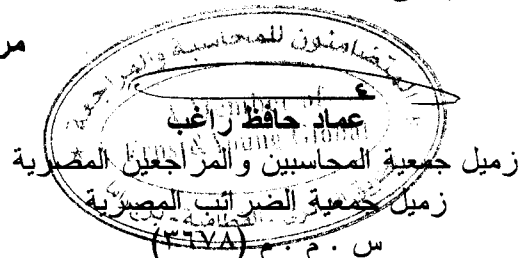 مر
المتضامنون للمحاسبة والمراجعة
عماد حافظ راغب
Young Global
زميل جمعية المحاسبين والمراجعين المصرية
زميل جمعية الضرائب المصرية
س . م . م (٣٦٧٨)